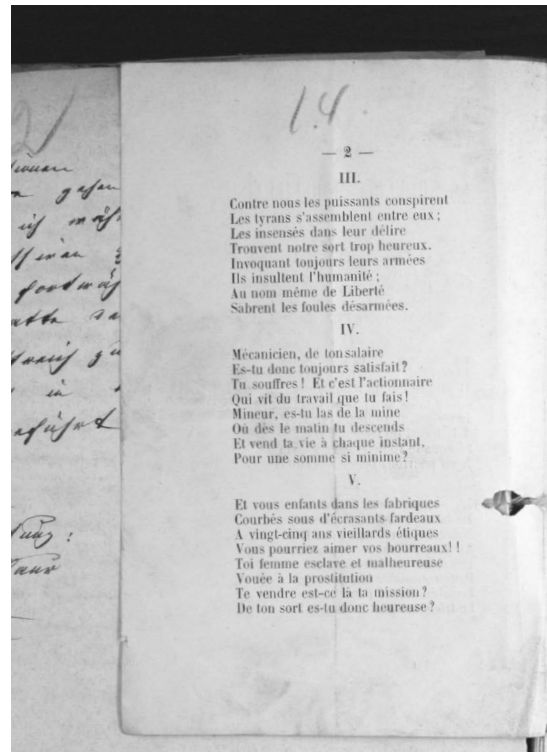 1.4.
— 2 —
III.
Contre nous les puissants conspirent
Les tyrans s'assemblent entre eux ;
Les insensés dans leur délire
Trouvent notre sort trop heureux.
Invoquant toujours leurs armées
Ils insultent l'humanité ;
Au nom même de Liberté
Sabrent les foules désarmées.
IV.
Mécanicien, de ton salaire
Es-tu donc toujours satisfait?
Tu souffres ! Et c'est l'actionnaire
Qui vit du travail que tu fais!
Mineur, es-tu las de la mine
Où dès le matin tu descends
Et vend ta vie à chaque instant,
Pour une somme si minime?
V.
Et vous enfants dans les fabriques
Courbés sous d'écrasants fardeaux
A vingt-cinq ans vieillards étiques
Vous pourriez aimer vos bourreaux! !
Toi femme esclave et malheureuse
Vouée à la prostitution
Te vendre est-ce là ta mission?
De ton sort es-tu donc heureuse?